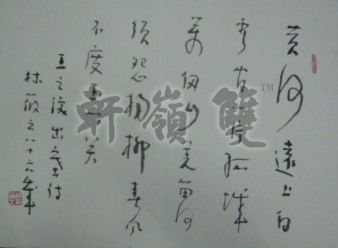 黄河遠上白
雲一片孤城
萬仞山羌笛何
須怨楊柳春风
不度玉门关
王之涣出塞诗
林散之八十六
雙嶺軒
TM